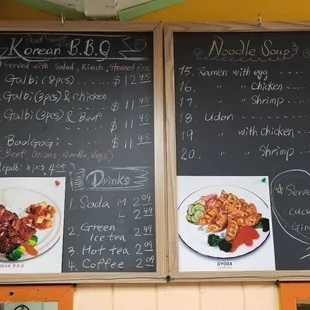 Korean B.B.Q
Served with Salad, Kimchi, Steamed Rice
Galbi (8pcs) $12.45
Galbi (3pcs) & chicken $11.45
Galbi (3pcs) & Beef $11.45
Boolgogi $11.45
(Beef, Onions, Noodle, Vegs)
Drinks
1. Soda M 2.09
L 2.49
2. Green Ice tea 2.49
3. Hot tea 2.09
4. Coffee 2.09
B.B.Q
Noodle Soup
15. Ramen with egg
16. " " chicken
17. " " Shrimp
18. Udon
19. " with chicken
20. Shrimp
GYOZA
Serve